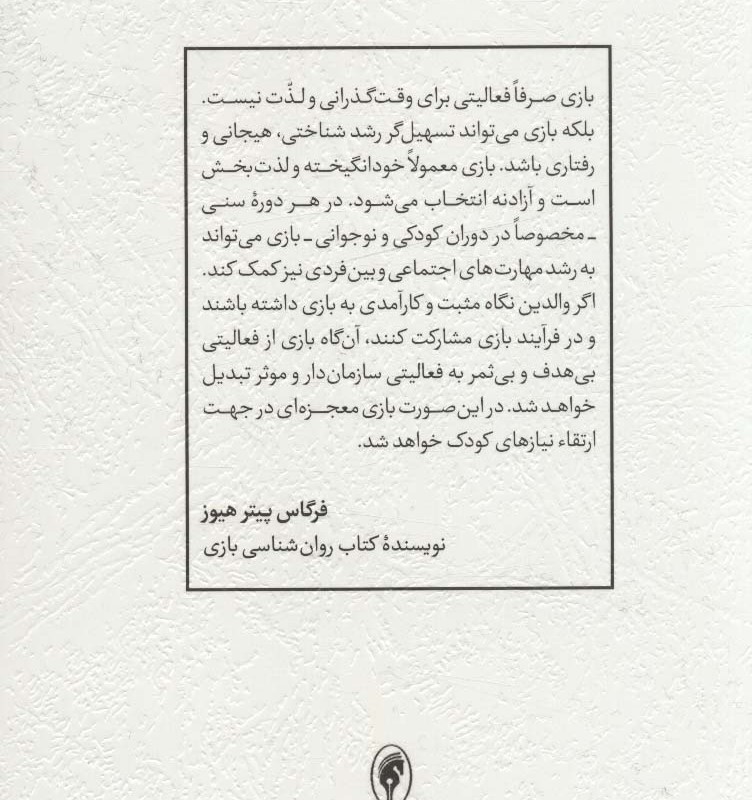 بازی صرفاً فعالیتی برای وقت‌گذرانی و لذّت نیست.
بلکه بازی می‌تواند تسهیل‌گر رشد شناختی، هیجانی و
رفتاری باشد. بازی معمولاً خودانگیخته و لذت‌بخش
است و آزادنه انتخاب می‌شود. در هر دورهٔ سنی
ـ مخصوصاً در دوران کودکی و نوجوانی ـ بازی می‌تواند
به رشد مهارت‌های اجتماعی و بین‌فردی نیز کمک کند.
اگر والدین نگاه مثبت و کارآمدی به بازی داشته باشند
و در فرآیند بازی مشارکت کنند، آن‌گاه بازی از فعالیتی
بی‌هدف و بی‌ثمر به فعالیتی سازمان‌دار و موثر تبدیل
خواهد شد. در این‌صورت بازی معجزه‌ای در جهت
ارتقاء نیازهای کودک خواهد شد.
فرگاس پیتر هیوز
نویسندهٔ کتاب روان‌شناسی بازی